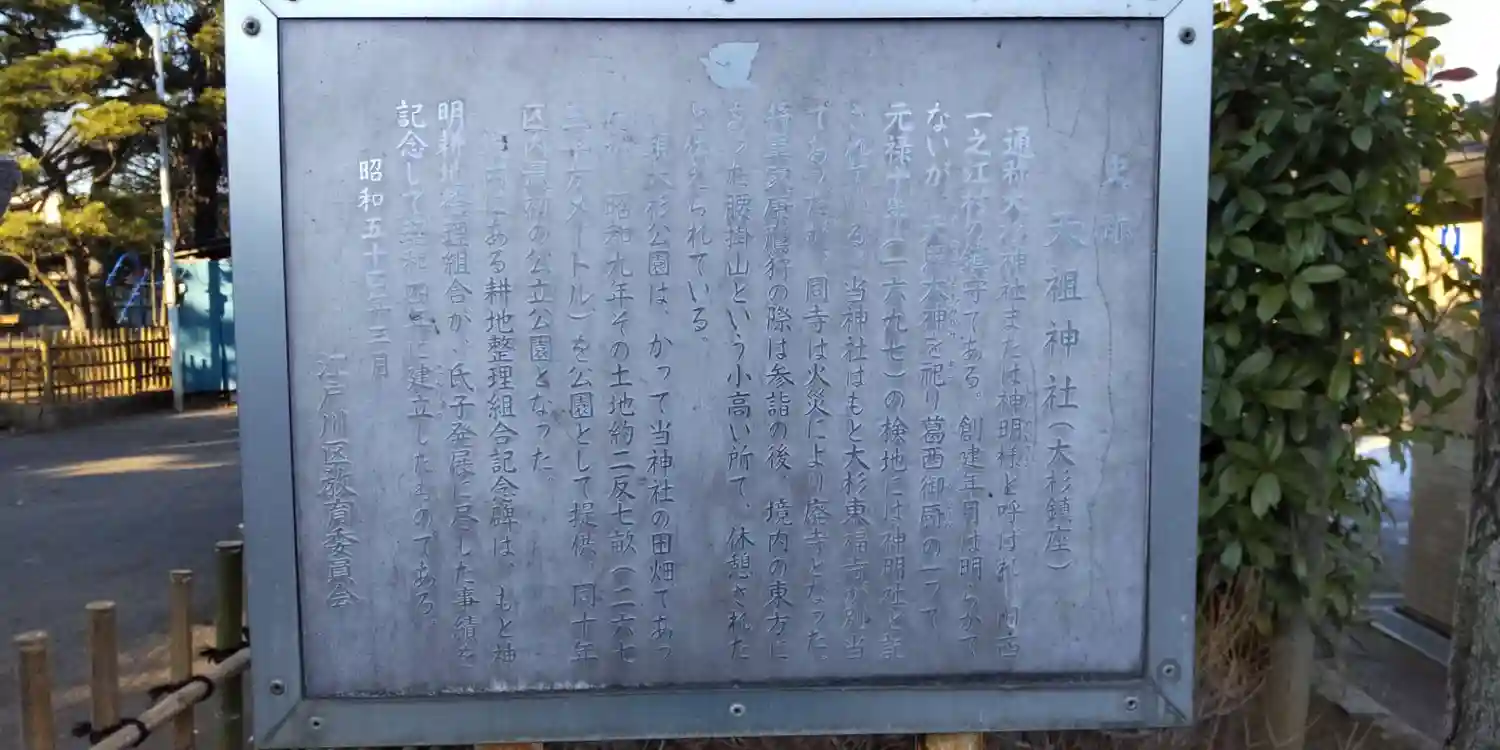 史跡
天祖神社(大杉鎮座)
通称大杉神社または神明様と呼ばれ、旧西
一之江村の鎮守である。創建年月は明らかで
ないが、天照大神を祀り葛西御厨の一つで
元禄十年(一六九七)の検地には神明社と記
されている。当神社はもと大杉東福寺が別当
であったが、同寺は火災により廃寺となった。
将軍家鷹狩の際は参詣の後、境内の東方に
あった腰掛山という小高い所で、休憩された
と伝えられている。
現大杉公園は、かつて当神社の田畑であっ
たが、昭和九年その土地約二反七畝(二六七
三平方メートル)を公園として提供、同十年
区内最初の公立公園となった。
境内にある耕地整理組合記念碑は、もと神
明耕地整理組合が、氏子発展に尽した事績を
記念して昭和四年に建立したものである。
昭和五十三年三月
江戸川区教育委員会